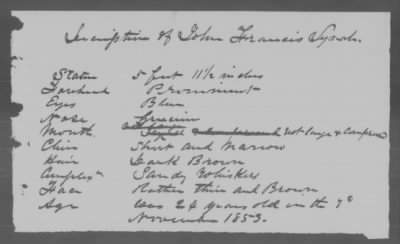 Description of John Francis
Stature 5 feet 11½ inches
Forehead Prominent
Eyes Blue
Nose
Mouth not large & Compressed
Chin Short and Narrow
Hair Dark Brown
Complexn Sandy Whiskers
Face Rather thin and Brown
Age was 24 years old on the 7th
November 1853.